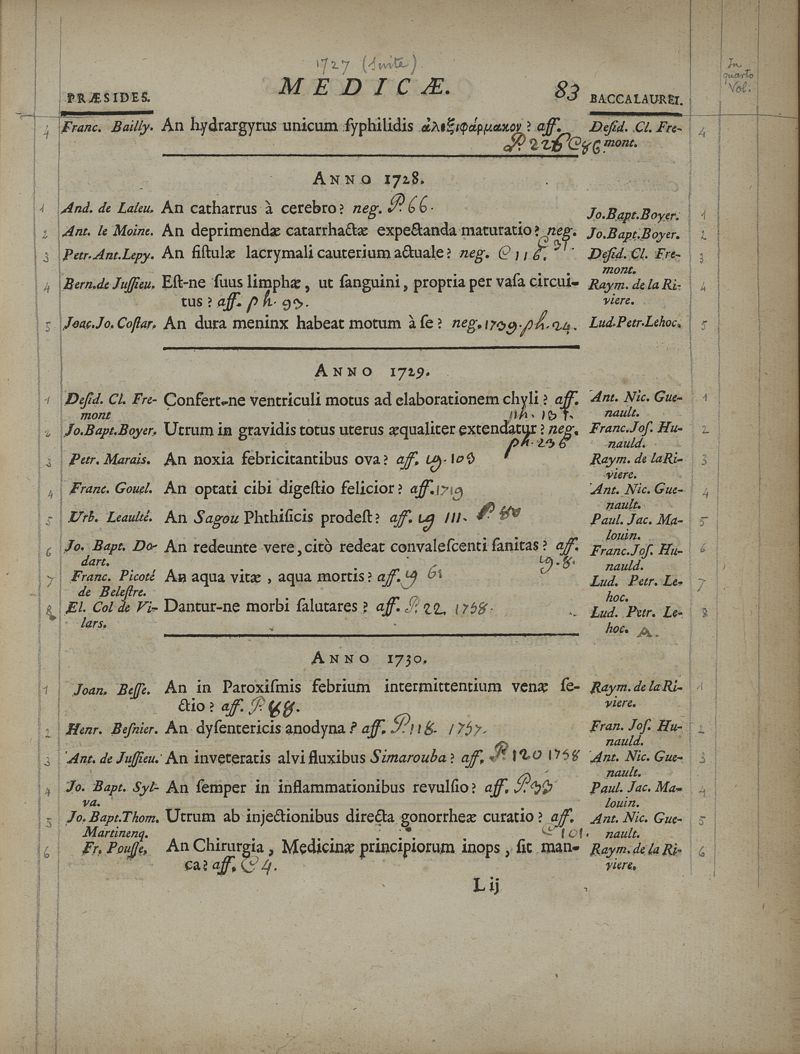 1727 (Suite)
In quarto Vol.
PRÆSIDES. MEDICÆ. 83 BACCALAUREI.
4 Franc. Bailly. An hydrargyrus unicum ſyphilidis ἀλεξιφάρμακον ? aff. Deſid. Cl. Fre- 4
mont.
ANNO 1728.
1 And. de Laleu. An catharrus à cerebro ? neg. P. 66. Jo.Bapt.Boyer. 1
2 Ant. le Moine. An deprimendæ catarrhactæ expectanda maturatio ? neg. Jo.Bapt.Boyer. 2
3 Petr. Ant. Lepy. An fiſtulæ lacrymali cauterium actuale ? neg. Deſid. Cl. Fre- 3
mont.
4 Bern.de Juſſieu. Eſt-ne ſuus limphæ, ut ſanguini, propria per vaſa circui- Raym. de la Ri- 4
tus ? aff. viere.
5 Joac. Jo. Coſtar. An dura meninx habeat motum à ſe ? neg. 1709. Lud. Petr. Lehoc. 5
ANNO 1729.
1 Deſid. Cl. Fre- Confert-ne ventriculi motus ad elaborationem chyli ? aff. Ant. Nic. Gue- 1
mont nault.
2 Jo.Bapt.Boyer. Utrum in gravidis totus uterus æqualiter extendatur ? neg. Franc. Joſ. Hu- 2
nauld.
3 Petr. Marais. An noxia febricitantibus ova ? aff. Raym. de la Ri- 3
viere.
4 Franc. Gouel. An optati cibi digeſtio felicior ? aff. 1719 Ant. Nic. Gue- 4
nault.
5 Urb. Leaulté. An Sagou Phthiſicis prodeſt ? aff. 111. Paul. Jac. Ma- 5
louin.
6 Jo. Bapt. Do- An redeunte vere, citò redeat convaleſcenti ſanitas ? aff. Franc. Joſ. Hu- 6
dart. nauld.
7 Franc. Picoté An aqua vitæ, aqua mortis ? aff. 61 Lud. Petr. Le- 7
de Beleſtre. hoc.
8 El. Col de Vi- Dantur-ne morbi ſalutares ? aff. P. 22. 1758. Lud. Petr. Le- 8
lars. hoc.
ANNO 1730.
1 Joan. Beſſe. An in Paroxiſmis febrium intermittentium venæ ſe- Raym. de la Ri- 1
ctio ? aff. viere.
2 Henr. Beſnier. An dyſentericis anodyna ? aff. P. 118. 1757. Fran. Joſ. Hu- 2
nauld.
3 Ant. de Juſſieu. An inveteratis alvi fluxibus Simarouba ? aff. P. 120 1758 Ant. Nic. Gue- 3
nault.
4 Jo. Bapt. Syl- An ſemper in inflammationibus revulſio ? aff. Paul. Jac. Ma- 4
va. louin.
5 Jo. Bapt. Thom. Utrum ab injectionibus directa gonorrheæ curatio ? aff. Ant. Nic. Gue- 5
Martinenq. 101. nault.
6 Fr. Pouſſe. An Chirurgia, Medicinæ principiorum inops, ſit man- Raym. de la Ri- 6
ca ? aff. viere.
L ij